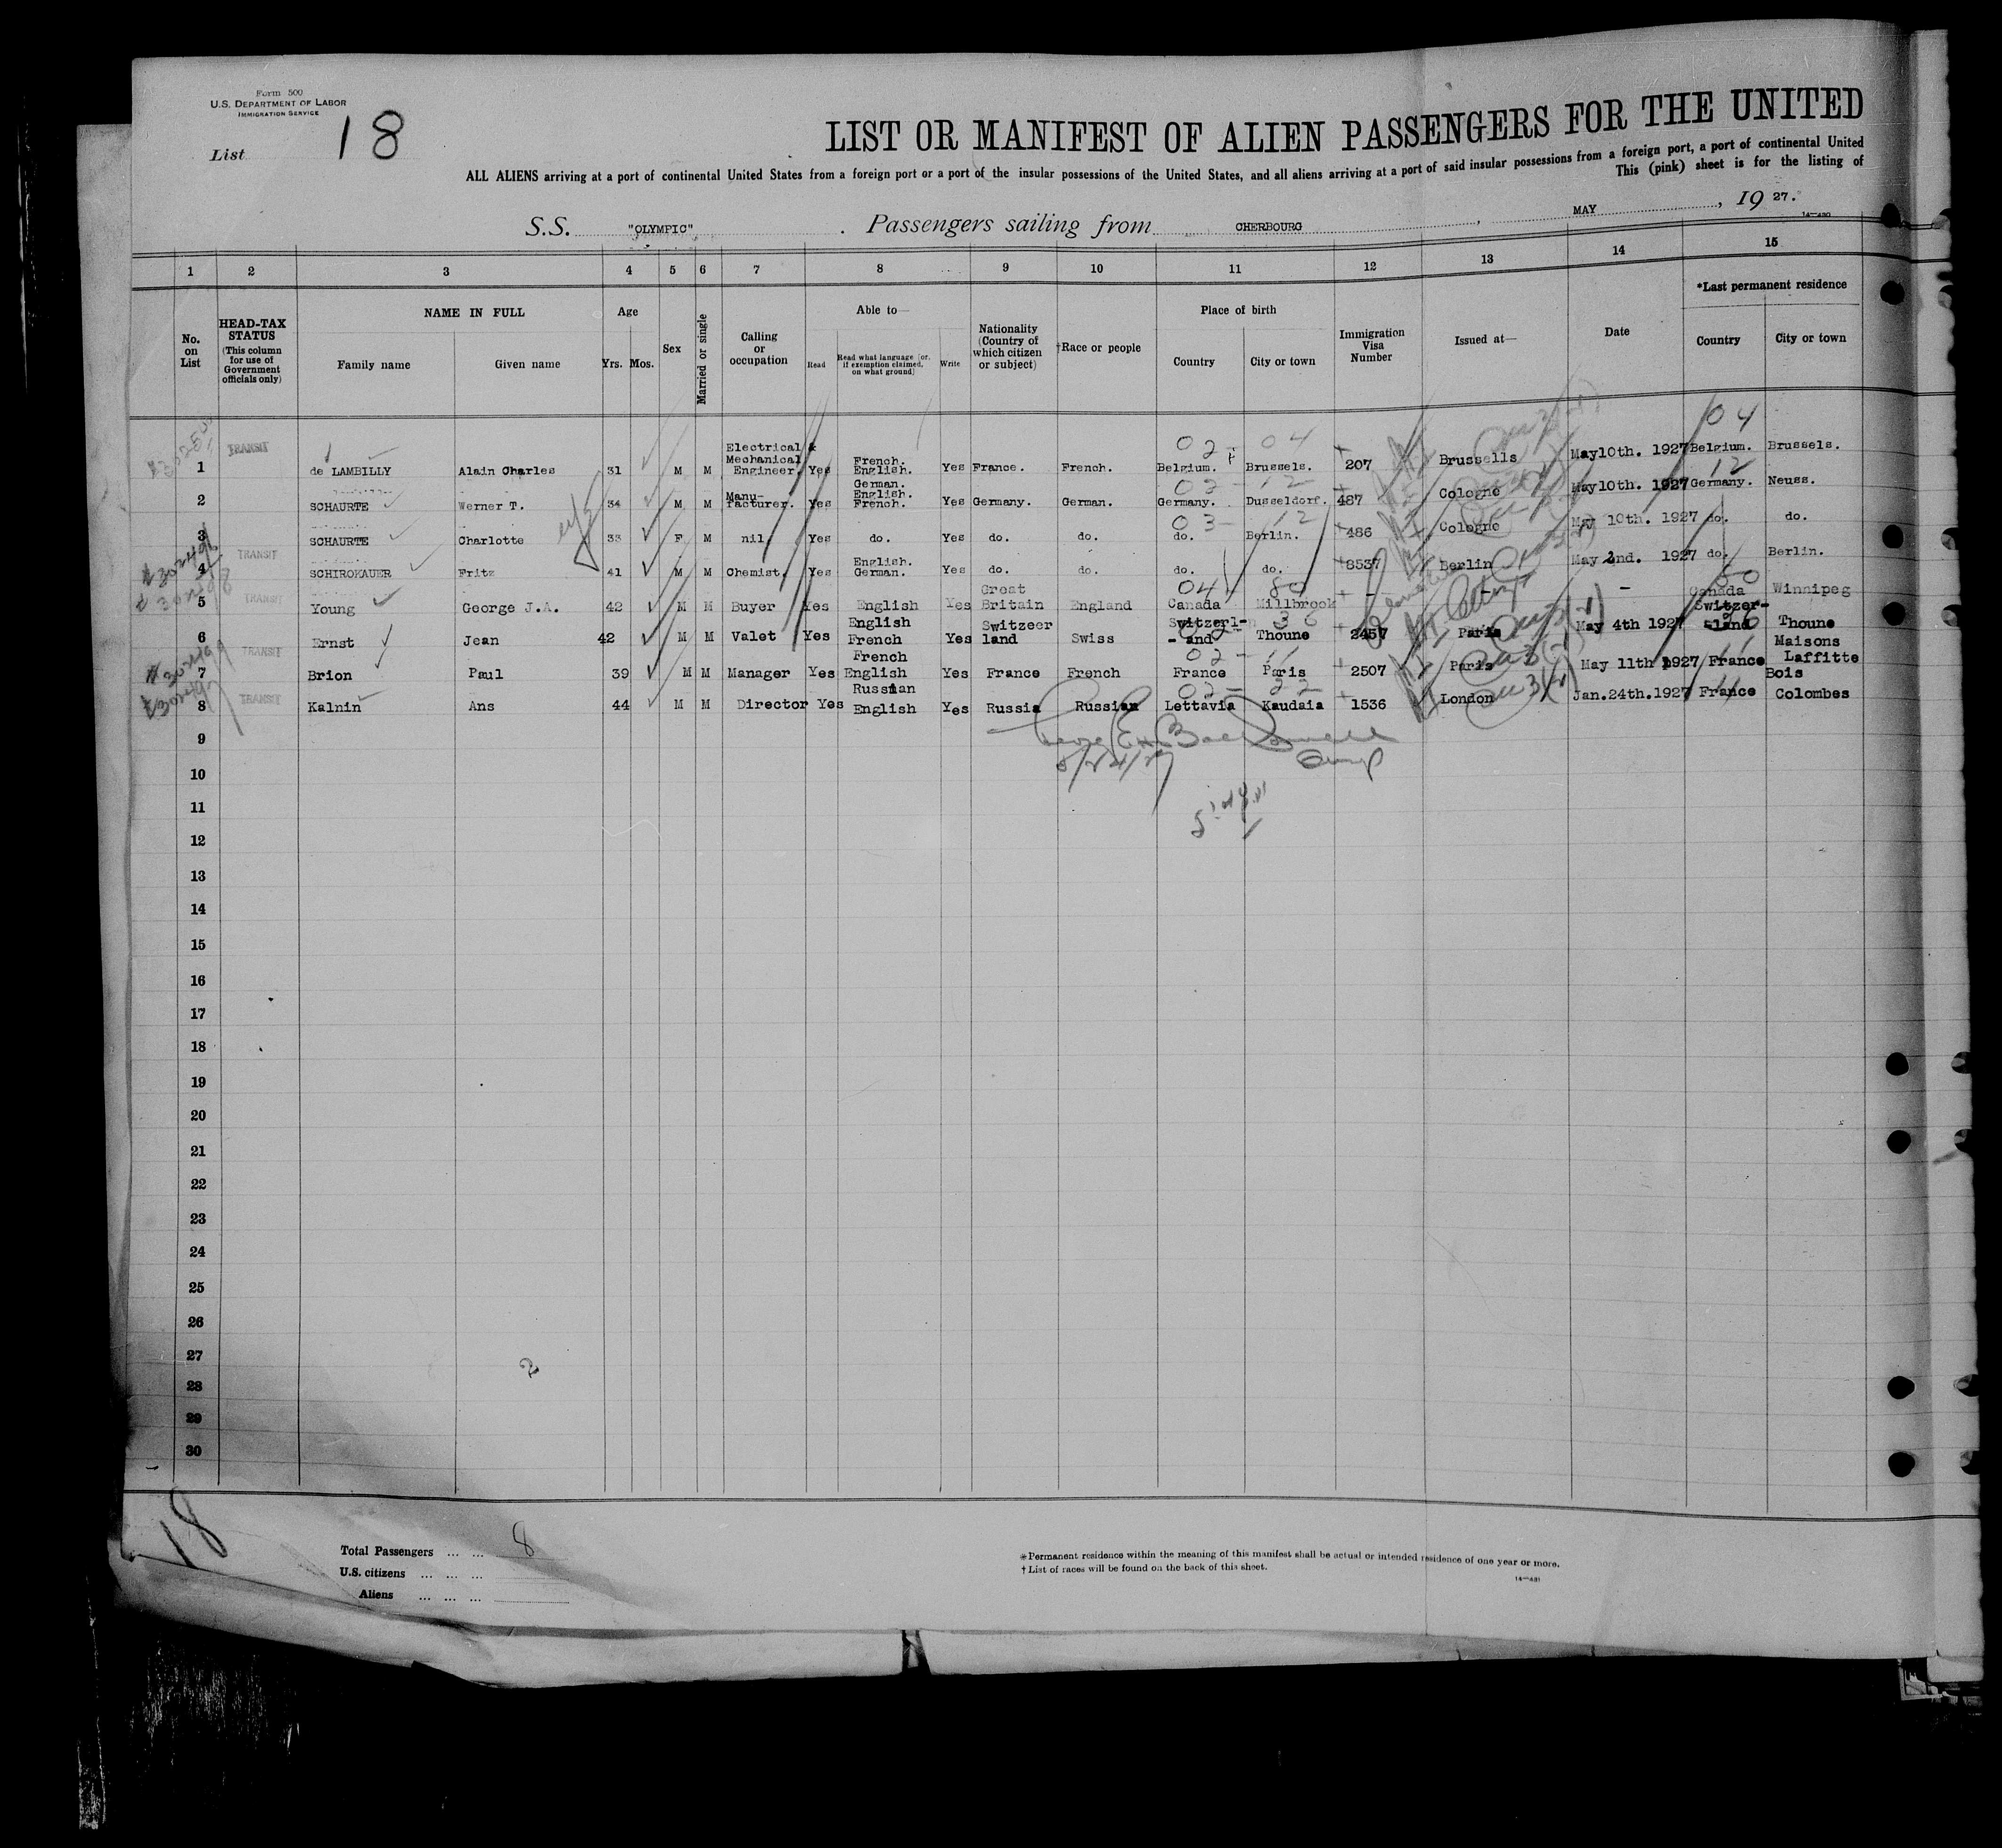 Form 500
U.S. DEPARTMENT OF LABOR
IMMIGRATION SERVICE
List 18
LIST OR MANIFEST OF ALIEN PASSENGERS FOR THE UNITED
ALL ALIENS arriving at a port of continental United States from a foreign port or a port of the insular possessions of the United States, and all aliens arriving at a port of said insular possessions from a foreign port, a port of continental United
This (pink) sheet is for the listing of
S.S. "OLYMPIC" . Passengers sailing from CHERBOURG , MAY , 19 27.
14—430
1 2 3 4 5 6 7 8 9 10 11 12 13 14 15
No. on List
HEAD-TAX STATUS (This column for use of Government officials only)
NAME IN FULL
Family name Given name
Age
Yrs. Mos.
Sex
Married or single
Calling or occupation
Able to—
Read
Read what language [or, if exemption claimed, on what ground]
Write
Nationality (Country of which citizen or subject)
†Race or people
Place of birth
Country City or town
Immigration Visa Number
Issued at—
Date
*Last permanent residence
Country City or town
02 - 04 04
TRANSIT
1 de LAMBILLY Alain Charles 31 M M Electrical & Mechanical Engineer. Yes French. English. Yes France. French. Belgium. Brussels. 207 Brussells May10th. 1927 Belgium. Brussels.
03 - 12 12
2 SCHAURTE Werner T. 34 M M Manu- facturer. Yes German. English. French. Yes Germany. German. Germany. Dusseldorf. 487 Cologne May10th. 1927 Germany. Neuss.
03 - 12
3 SCHAURTE Charlotte 33 F M nil Yes do. Yes do. do. do. Berlin. 486 Cologne May 10th. 1927 do. do.
TRANSIT
4 SCHIROKAUER Fritz 41 M M Chemist. Yes English. German. Yes do. do. do. do. 8537 Berlin May 2nd. 1927 do. Berlin.
04 80
TRANSIT
5 Young George J.A. 42 M M Buyer Yes English Yes Great Britain England Canada Millbrook - - - Canada Winnipeg
6 Ernst Jean 42 M M Valet Yes English French Yes Switzeer land Swiss Switzerl- - and Thoune 2457 Paris May 4th 1927 Switzer- -land Thoune
02 - 11 11
TRANSIT
7 Brion Paul 39 M M Manager Yes French English Yes France French France Paris 2507 Paris May 11th 1927 France Maisons Laffitte
02 - 22
TRANSIT
8 Kalnin Ans 44 M M Director Yes Russian English Yes Russia Russian Lettavia Kaudaia 1536 London Jan.24th.1927 France Bois Colombes
9
5/24/27
10
11
12
13
14
15
16
17
18
19
20
21
22
23
24
25
26
27
28
29
30
18
Total Passengers ... ... 8
U.S. citizens ... ... ...
Aliens ... ... ...
*Permanent residence within the meaning of this manifest shall be actual or intended residence of one year or more.
†List of races will be found on the back of this sheet.
14—431